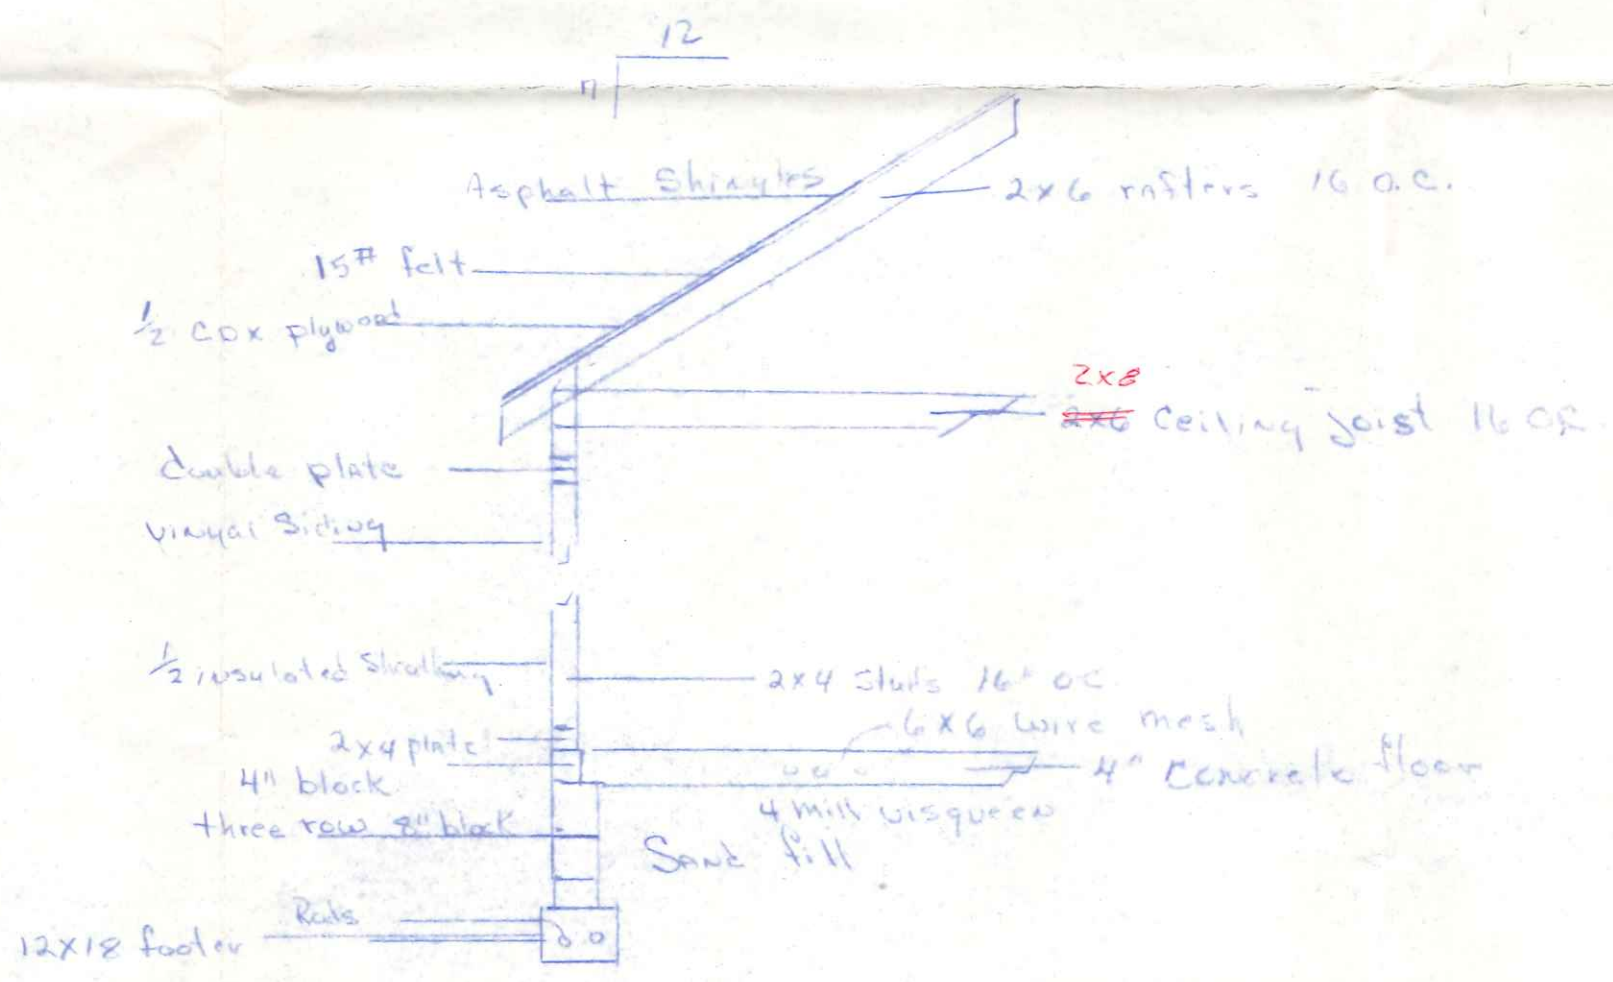 12
Asphalt Shingles
2x6 rafters 16 O.C.
15# felt
1/2 CDX plywood
2x8
2x6 Ceiling Joist 16 OC
double plate
vinyal Siding
1/2 insulated
2x4 studs 16" OC
6x6 wire mesh
2x4 plate
4" Concrete floor
4" block
4 mill visqueen
three row 8" block
Sand fill
12x18 footer